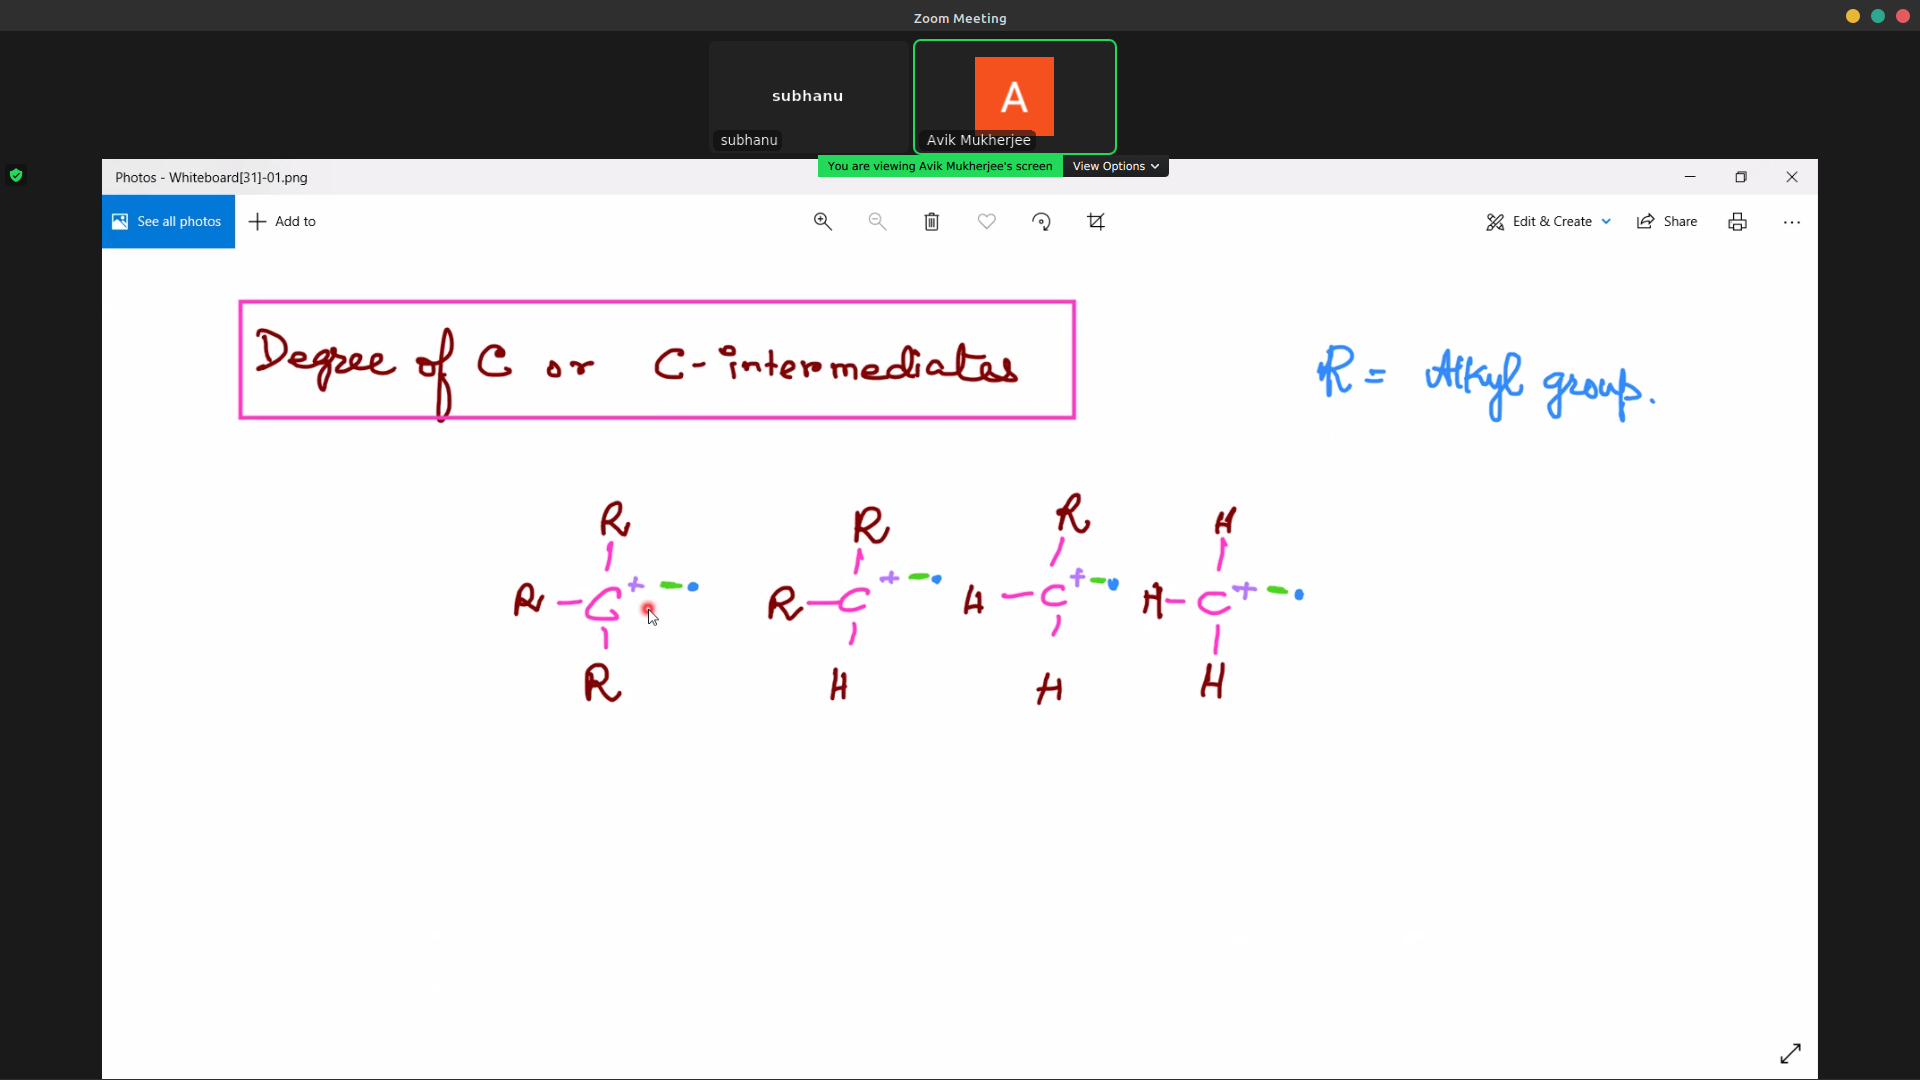 Zoom Meeting
subhanu
A
subhanu
Avik Mukherjee
You are viewing Avik Mukherjee's screen View Options
Photos - Whiteboard[31]-01.png
See all photos
Add to
Edit & Create
Share
Degree of C or C-intermediates
R = Alkyl group.
R R R H
R-C + - • R-C + - • H-C + - • H-C + - •
R H H H